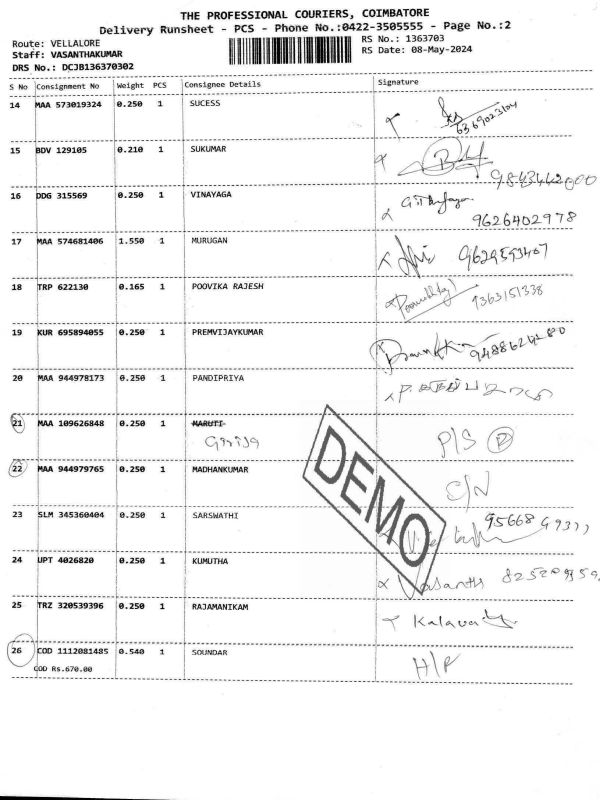 THE PROFESSIONAL COURIERS, COIMBATORE
Delivery Runsheet - PCS - Phone No.:0422-3505555 - Page No.:2
Route: VELLALORE RS No.: 1363703
Staff: VASANTHAKUMAR RS Date: 08-May-2024
DRS No.: DCJB136370302
S No Consignment No Weight PCS Consignee Details Signature
14 MAA 573019324 0.250 1 SUCESS
6369023104
15 BDV 129105 0.210 1 SUKUMAR
9843442000
16 DDG 315569 0.250 1 VINAYAGA
9626402978
17 MAA 574681406 1.550 1 MURUGAN 9629593407
18 TRP 622130 0.165 1 POOVIKA RAJESH 9363151338
19 KUR 695894055 0.250 1 PREMVIJAYKUMAR
20 MAA 944978173 0.250 1 PANDIPRIYA
21 MAA 109626848 0.250 1 MARUTI
Girija P/S
22 MAA 944979765 0.250 1 MADHANKUMAR
C/N
23 SLM 345360404 0.250 1 SARSWATHI
24 UPT 4026820 0.250 1 KUMUTHA
Vasanth
25 TRZ 320539396 0.250 1 RAJAMANIKAM
26 COD 1112081485 0.540 1 SOUNDAR
COD Rs.670.00
DEMO